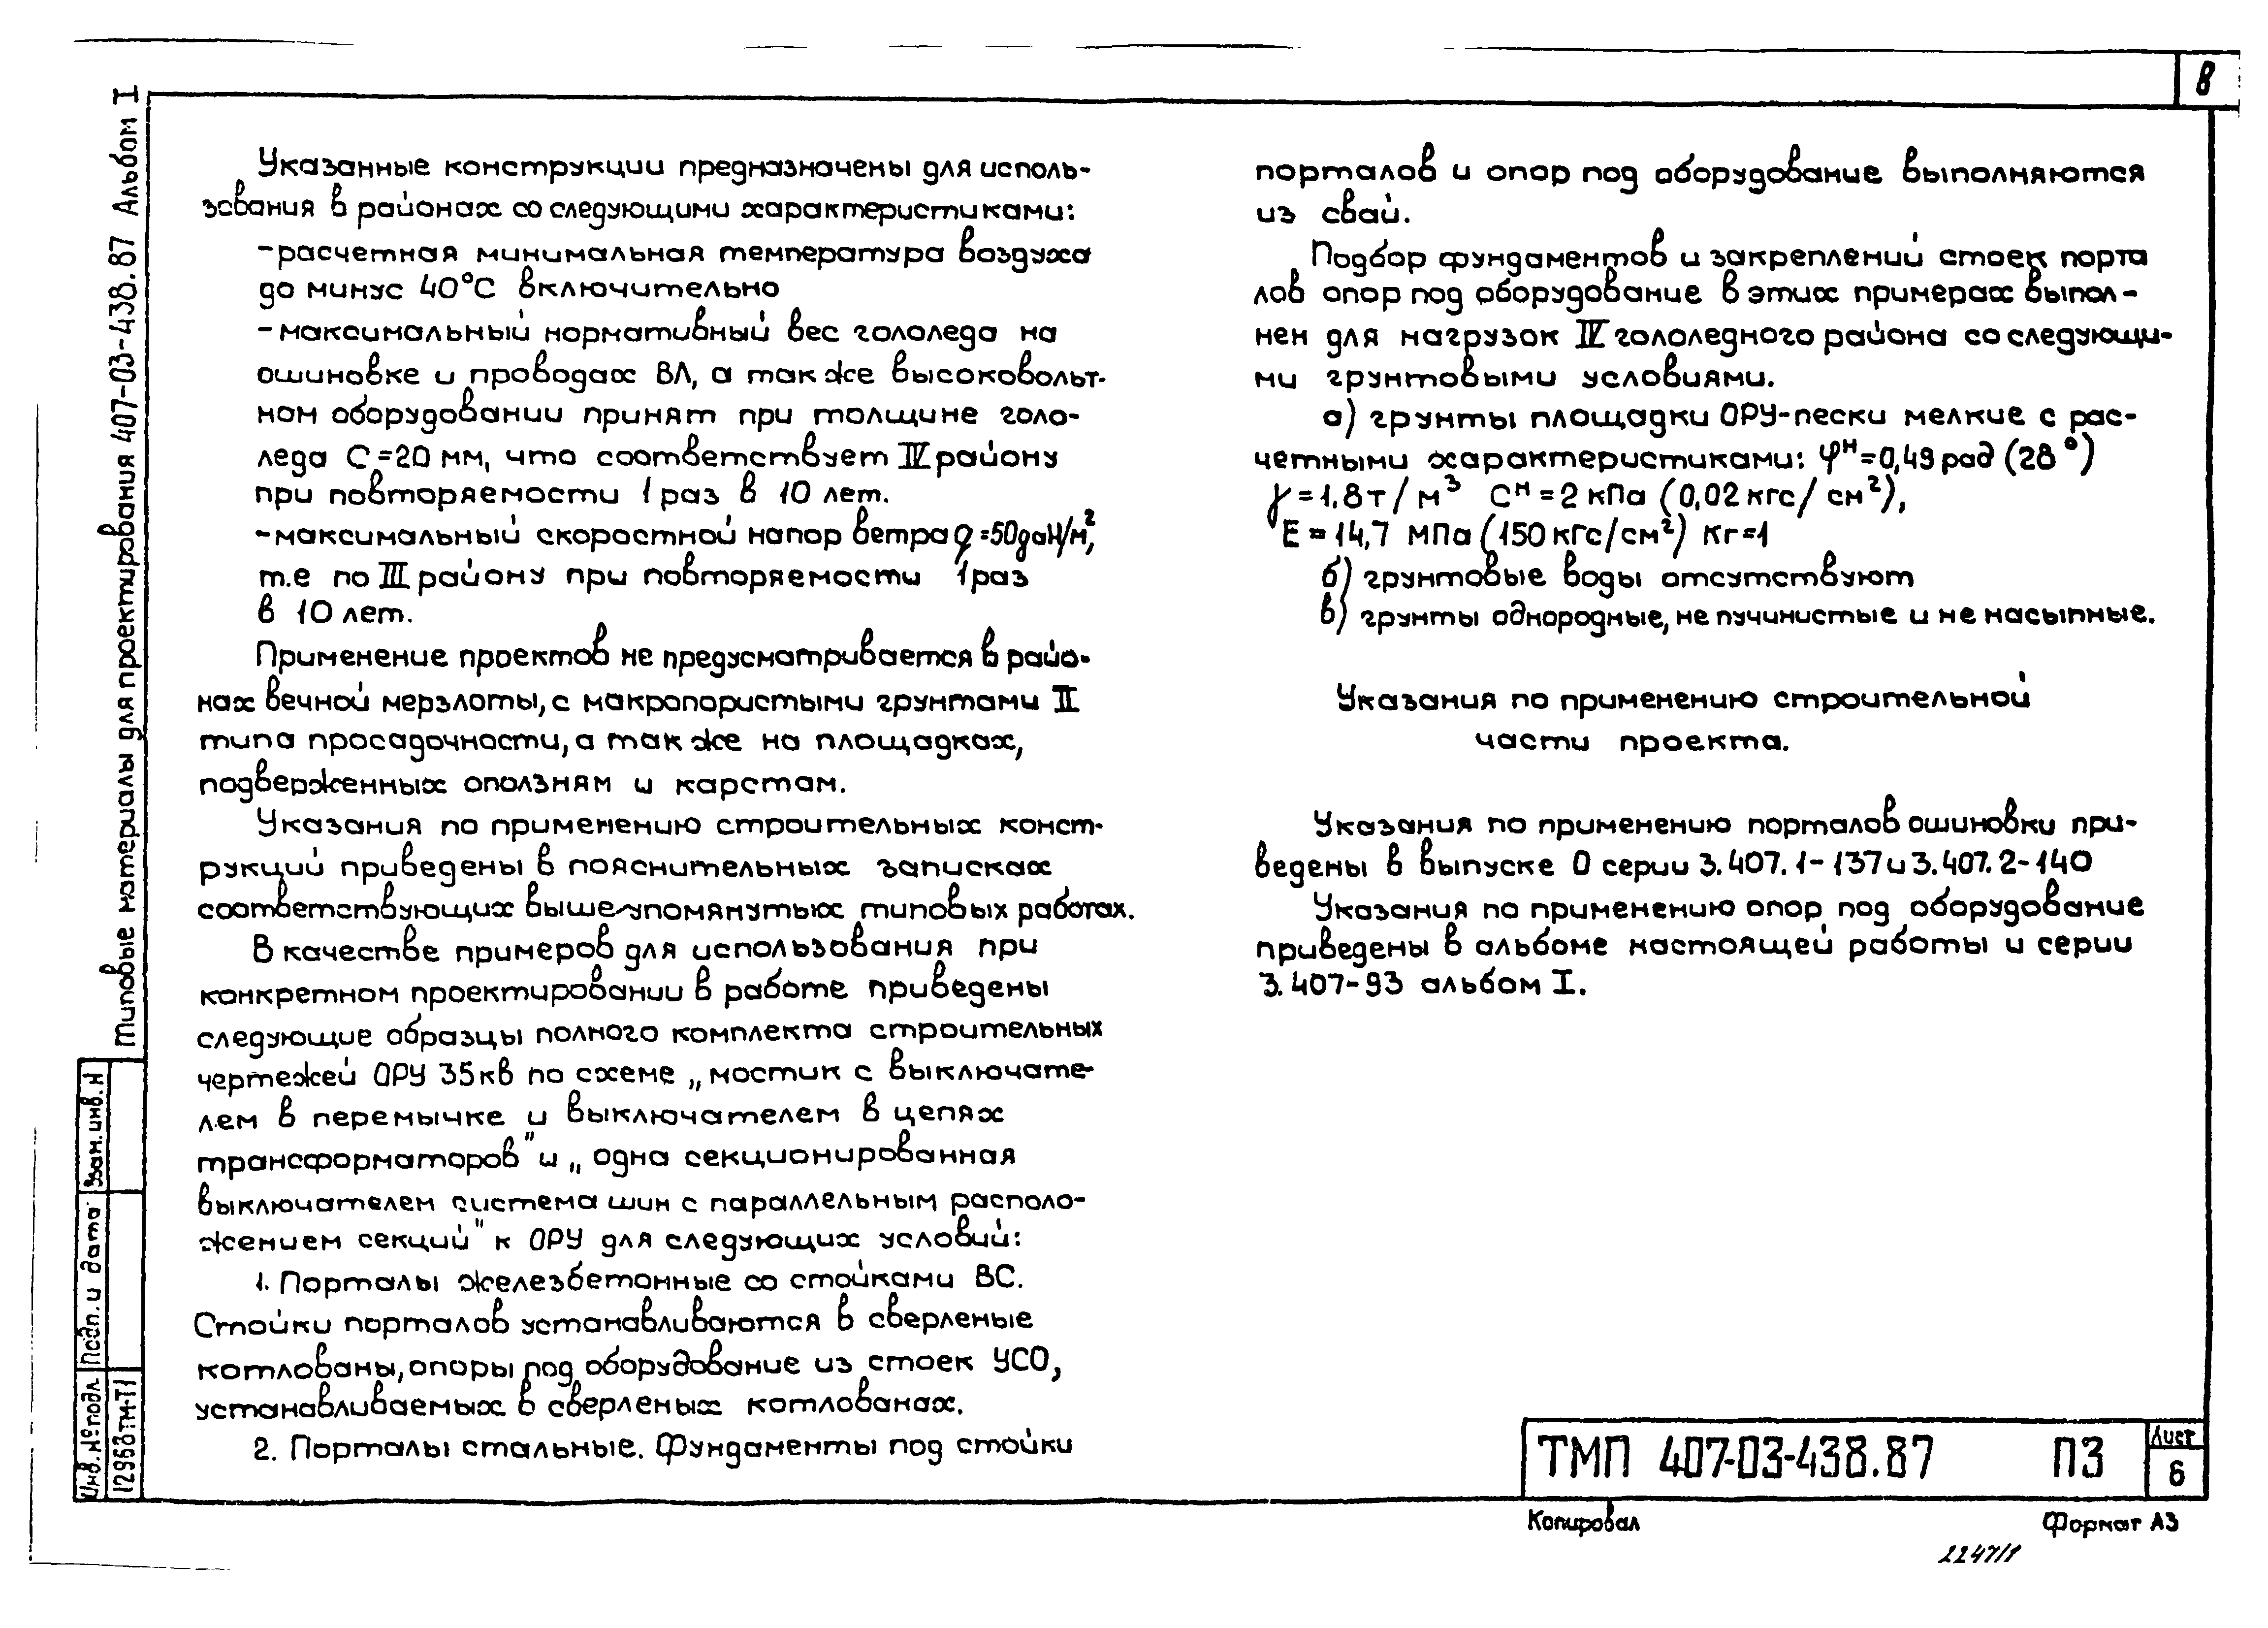 8
Типовые материалы для проектирования 407-03-438.87 Альбом I
Указанные конструкции предназначены для исполь-
зования в районах со следующими характеристиками:
-расчетная минимальная температура воздуха
до минус 40°С включительно
-максимальный нормативный вес гололеда на
ошиновке и проводах ВЛ, а также высоковольт-
ном оборудовании принят при толщине голо-
леда С=20 мм, что соответствует IV району
при повторяемости 1 раз в 10 лет.
-максимальный скоростной напор ветра q=50даН/м²,
т.е по III району при повторяемости 1 раз
в 10 лет.
Применение проектов не предусматривается в райо-
нах вечной мерзлоты, с макропористыми грунтами II
типа просадочности, а также на площадках,
подверженных оползням и карстам.
Указания по применению строительных конст-
рукций приведены в пояснительных записках
соответствующих выше упомянутых типовых работах.
В качестве примеров для использования при
конкретном проектировании в работе приведены
следующие образцы полного комплекта строительных
чертежей ОРУ 35кв по схеме „мостик с выключате-
лем в перемычке и выключателем в цепях
трансформаторов" и „одна секционированная
выключателем система шин с параллельным располо-
жением секций" к ОРУ для следующих условий:
1. Порталы железбетонные со стойками ВС.
Стойки порталов устанавливаются в сверленые
котлованы, опоры под оборудование из стоек УСО,
устанавливаемых в сверленых котлованах.
2. Порталы стальные. Фундаменты под стойки
порталов и опор под оборудование выполняются
из свай.
Подбор фундаментов и закреплений стоек порта
лов опор под оборудование в этих примерах выпол-
нен для нагрузок IV гололедного района со следующи-
ми грунтовыми условиями.
а) грунты площадки ОРУ-пески мелкие с рас-
четными характеристиками: φᴴ=0,49 рад (28°)
γ=1,8т/м³ Cᴴ=2 кПа (0,02 кгс/см²),
Е=14,7 МПа (150 кгс/см²) Кг=1
б) грунтовые воды отсутствуют
в) грунты однородные, не пучинистые и не насыпные.
Указания по применению строительной
части проекта.
Указания по применению порталов ошиновки при-
ведены в выпуске 0 серии 3.407.1-137 и 3.407.2-140
Указания по применению опор под оборудование
приведены в альбоме настоящей работы и серии
3.407-93 альбом I.
Взам. инв. N
Подп. и дата
Инв. № подл
12958тм-Т1
ТМП 407-03-438.87 ПЗ
Лист
6
Копировал
Формат А3
2247/1